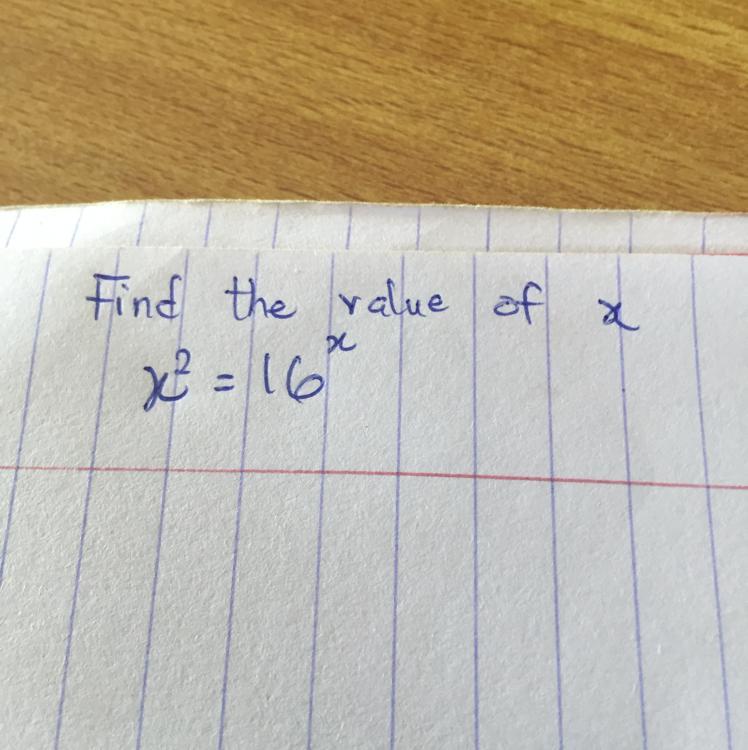 Find the value of x
x² = 16ˣ